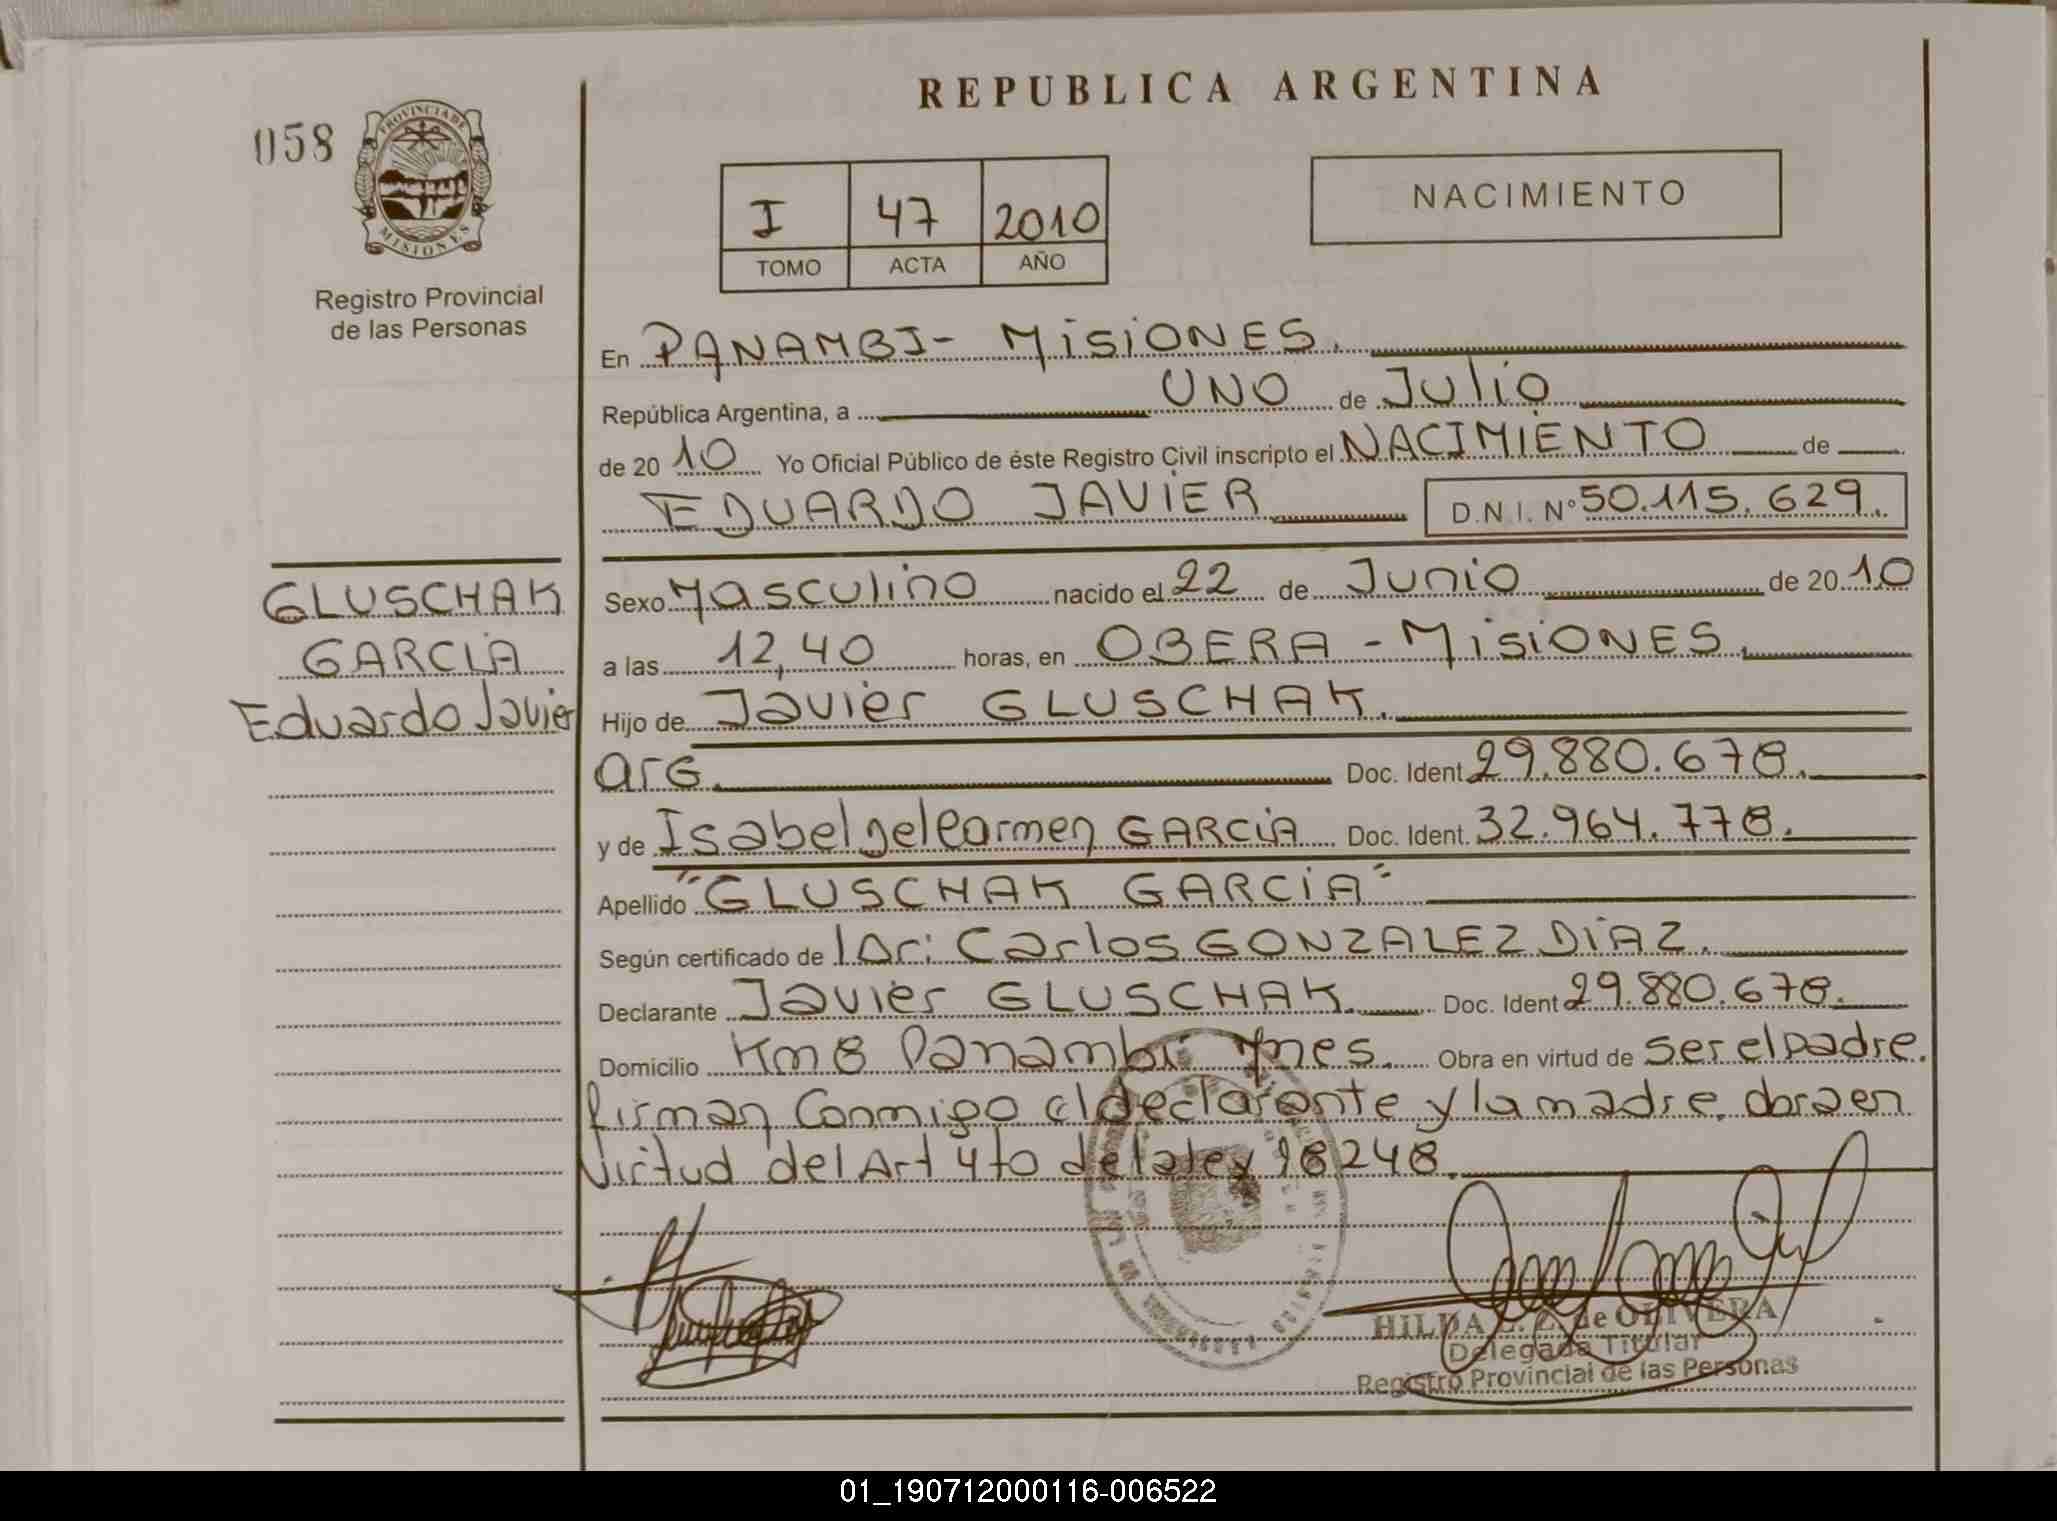 REPUBLICA ARGENTINA
058
PROVINCIA DE
MISIONES
Registro Provincial
de las Personas
I 47 2010
TOMO ACTA AÑO
NACIMIENTO
En PANAMBI - MISIONES.
República Argentina, a UNO de Julio
de 20 10 Yo Oficial Público de éste Registro Civil inscripto el NACIMIENTO de
EDUARDO JAVIER D.N.I. N° 50.115.629.
GLUSCHAK
GARCIA
Eduardo Javier
Sexo Masculino nacido el 22 de Junio de 20 10
a las 12,40 horas, en OBERA - MISIONES.
Hijo de Javier GLUSCHAK.
arG. Doc. Ident 29.880.678.
y de Isabel del Carmen GARCIA Doc. Ident. 32.964.778.
Apellido "GLUSCHAK GARCIA"
Según certificado de Dr: Carlos GONZALEZ DIAZ.
Declarante Javier GLUSCHAK. Doc. Ident 29.880.678.
Domicilio Km 8 Panambi Mnes. Obra en virtud de ser el padre.
firman Conmigo el declarante y la madre,
virtud del Art 4to de la ley 18248.
HILDA de OLIVERA
Delegada Titular
Registro Provincial de las Personas
01_190712000116-006522